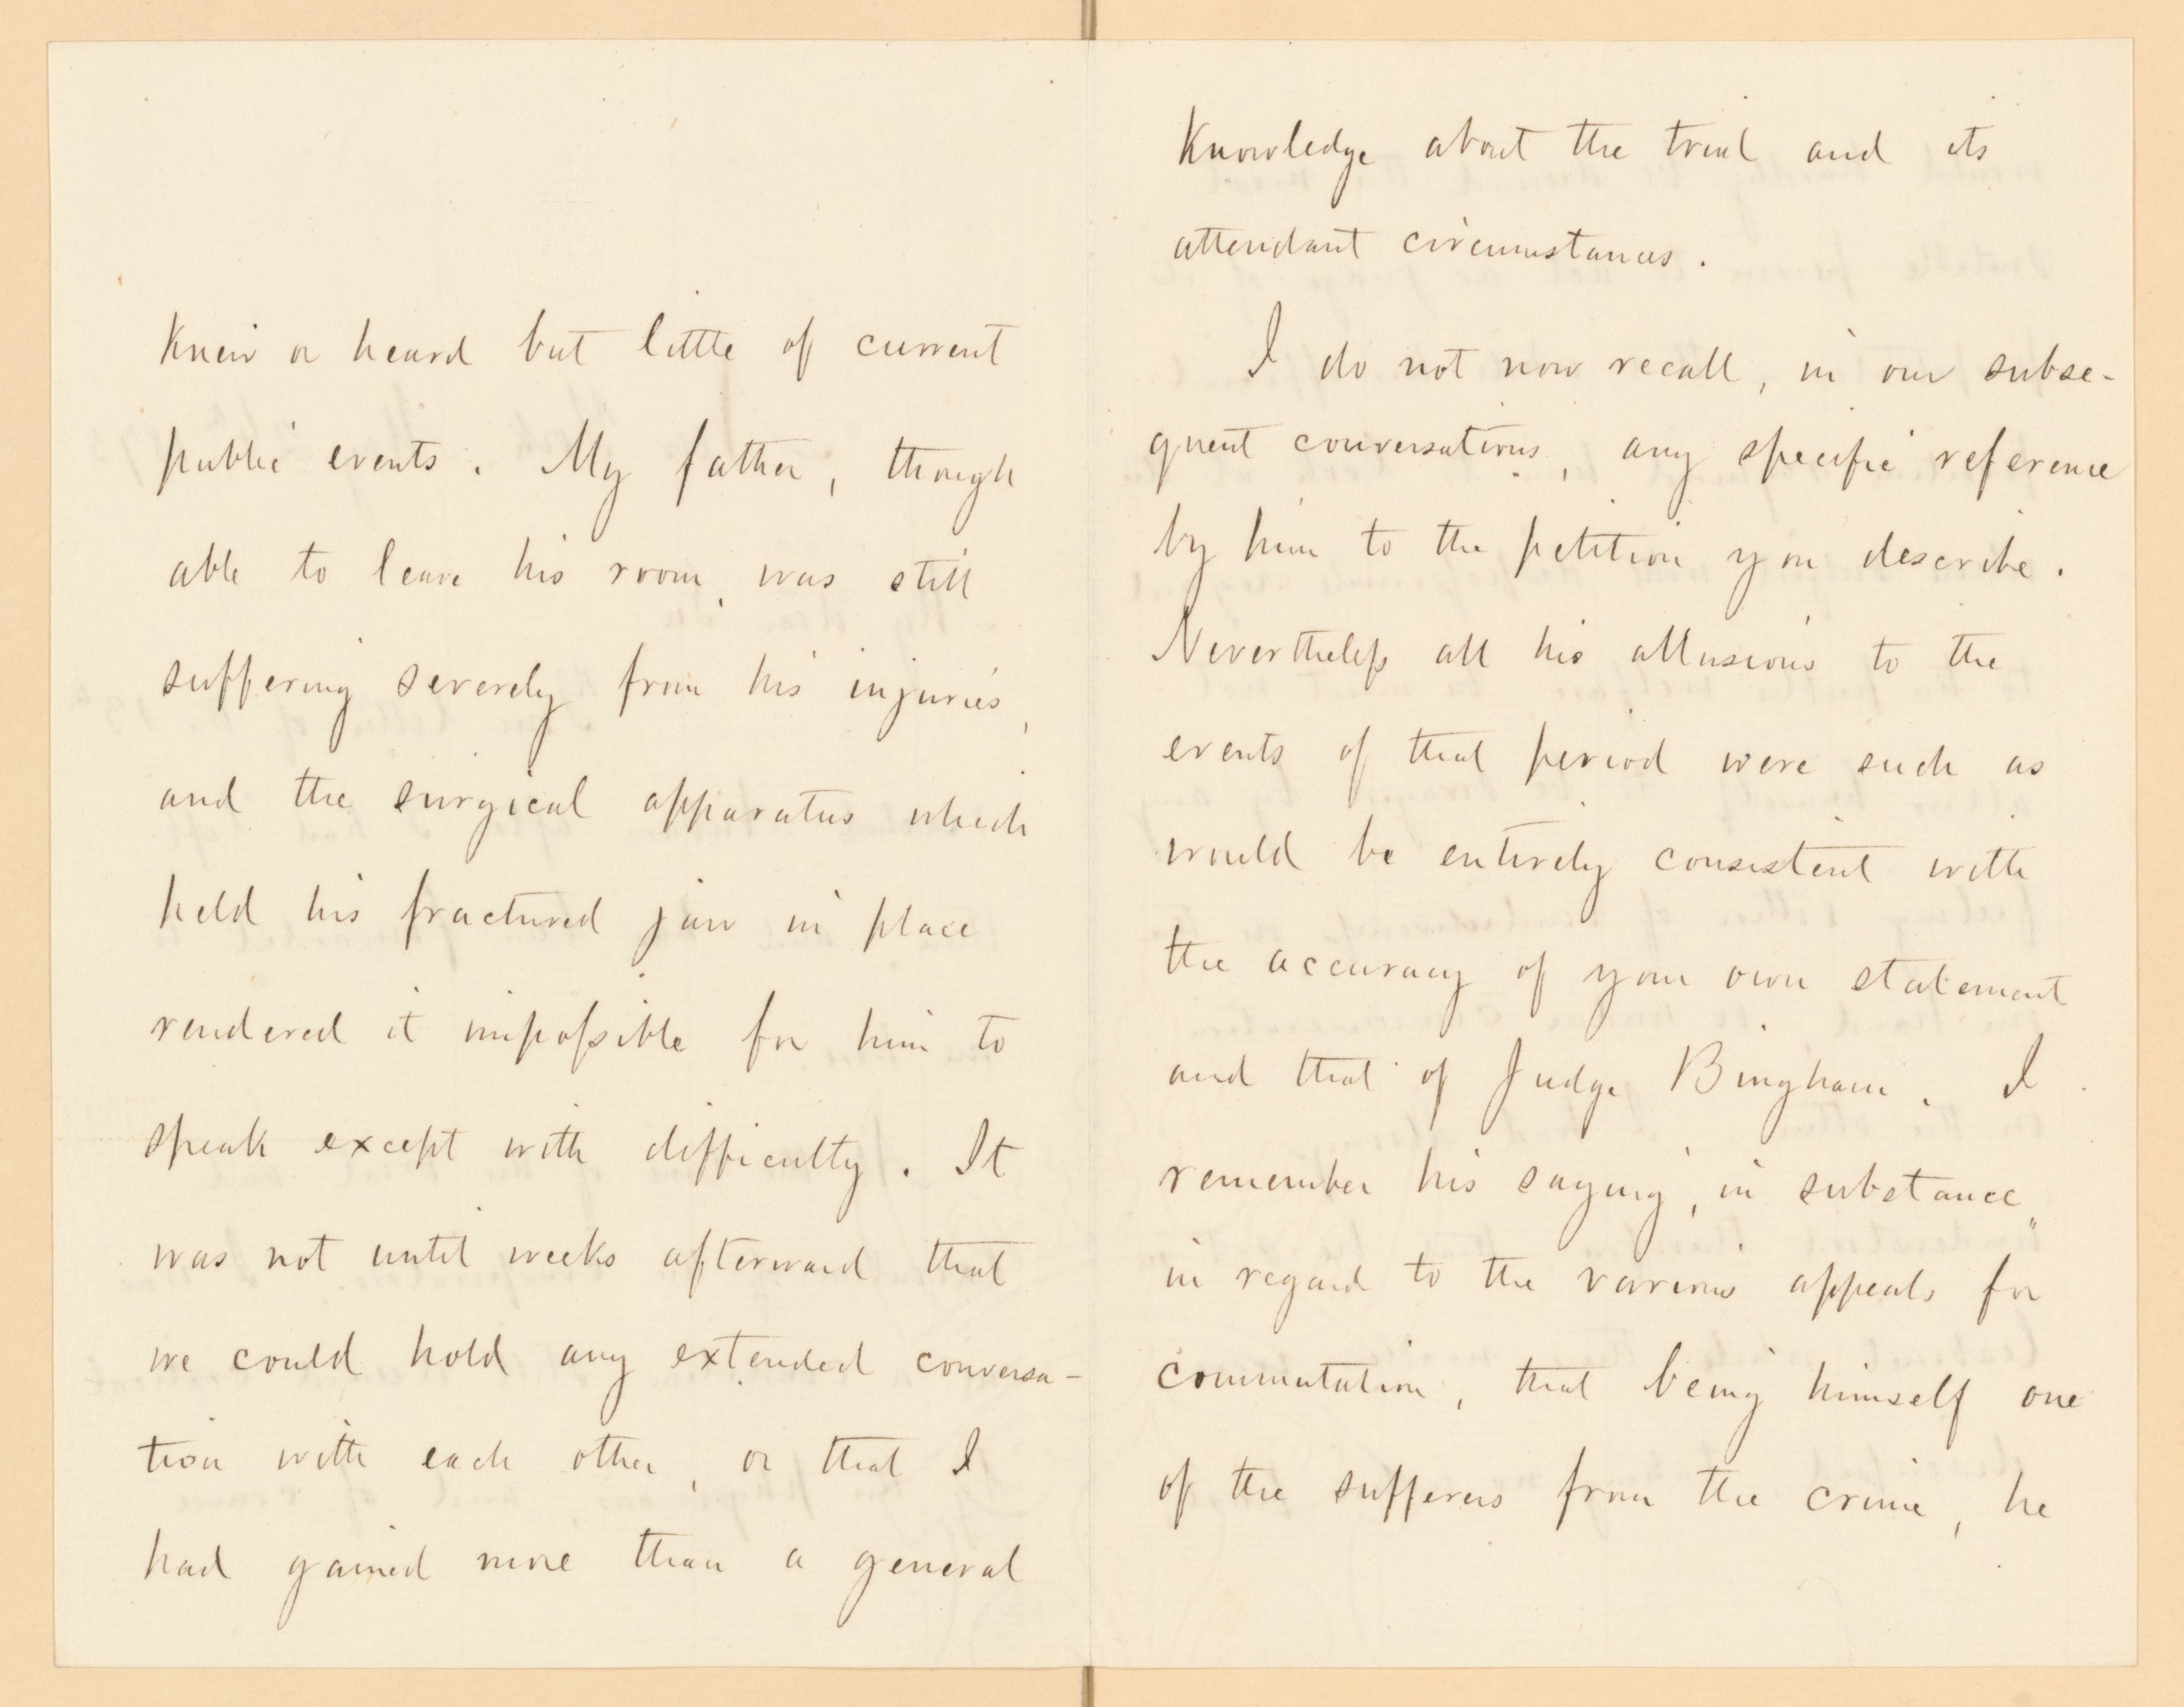 knew or heard but little of current
public events. My father, though
able to leave his room, was still
suffering severely from his injuries,
and the surgical apparatus which
held his fractured jaw in place
rendered it impossible for him to
speak except with difficulty. It
was not until weeks afterward that
we could hold any extended conversa-
tion with each other, or that I
had gained more than a general
knowledge about the trial and its
attendant circumstances.
I do not now recall, in our subse-
quent conversations, any specific reference
by him to the petition you describe.
Nevertheless all his allusions to the
events of that period were such as
would be entirely consistent with
the accuracy of your own statement
and that of Judge Bingham. I
remember his saying, in substance,
in regard to the various appeals for
commutation, that being himself one
of the sufferers from the crime, he